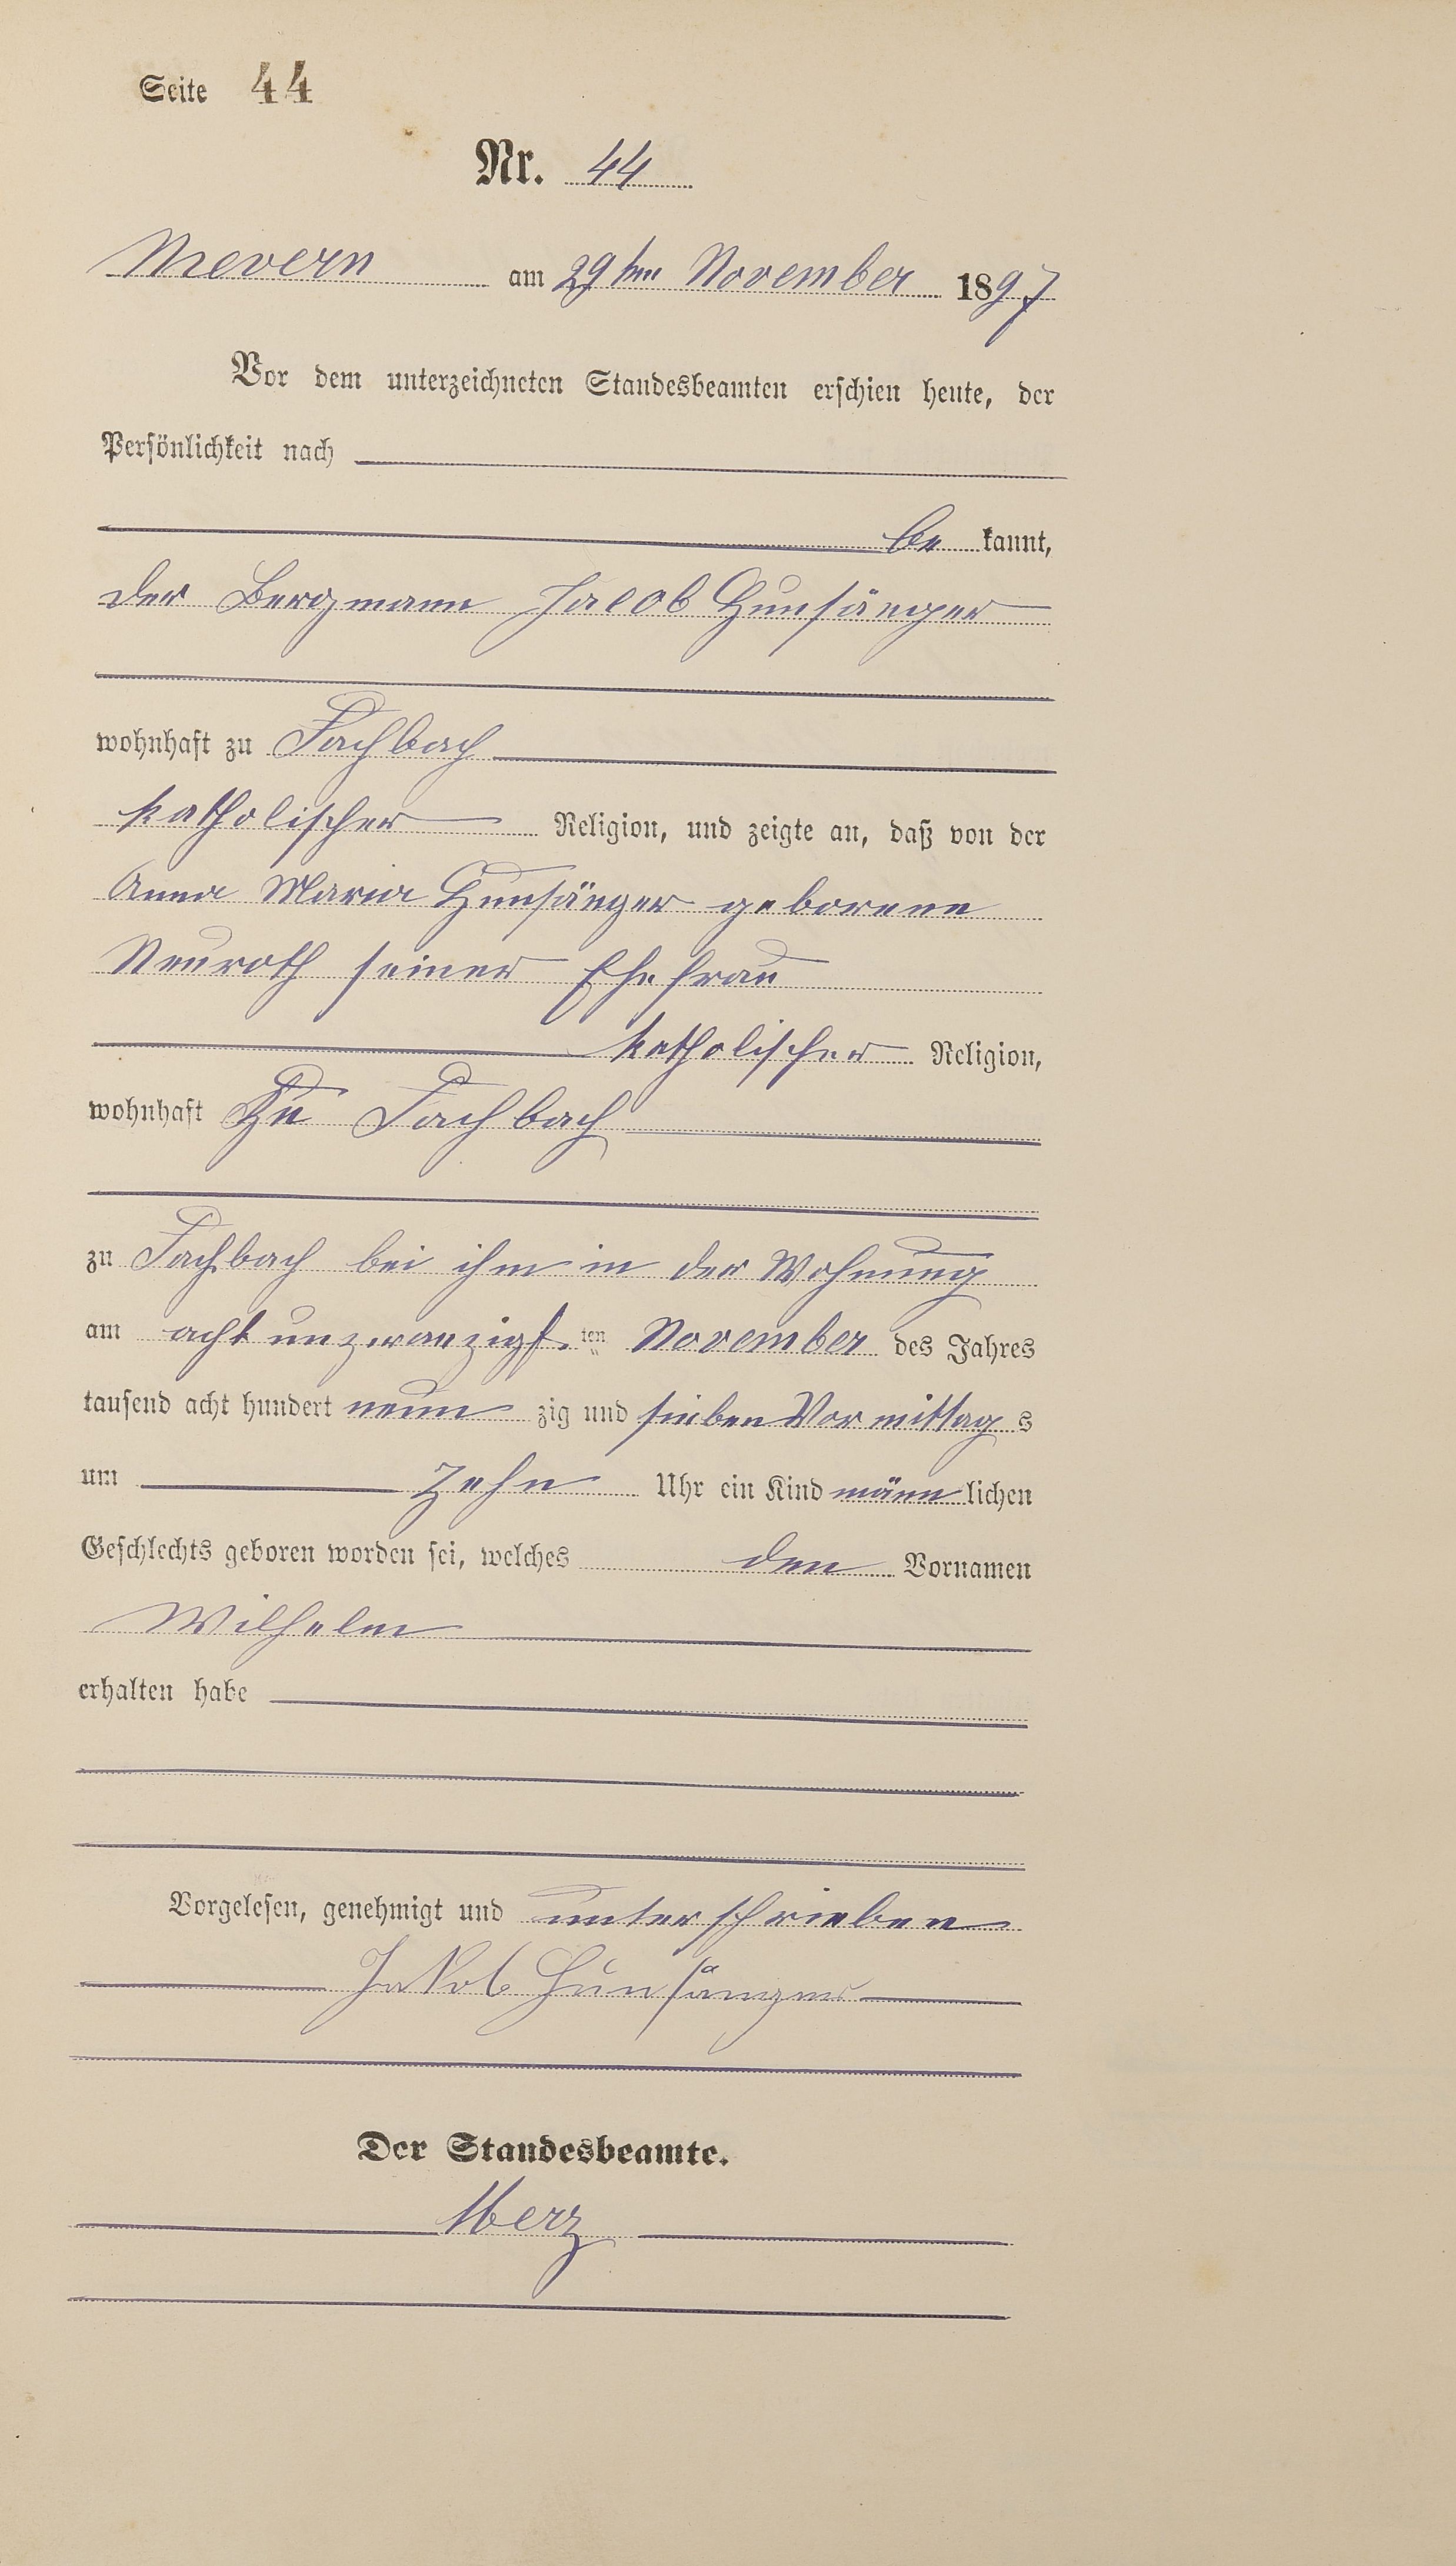 Seite 44
Nr. 44
Nievern am 29ten November 1897
Vor dem unterzeichneten Standesbeamten erschien heute, der
Persönlichkeit nach
be kannt,
der Bergmann Jacob Hunsänger
wohnhaft zu Fachbach
katholischer Religion, und zeigte an, daß von der
Anna Maria Hunsänger geborene
Neuroth seiner Ehefrau
katholischer Religion,
wohnhaft zu Fachbach
zu Fachbach bei ihm in der Wohnung
am acht unzwanzigs ten November des Jahres
tausend acht hundert neun zig und sieben Vor mittag s
um zehn Uhr ein Kind männ lichen
Geschlechts geboren worden sei, welches den Vornamen
Wilhelm
erhalten habe
Vorgelesen, genehmigt und unterschrieben
Jakob Hunsänger
Der Standesbeamte.
Merz